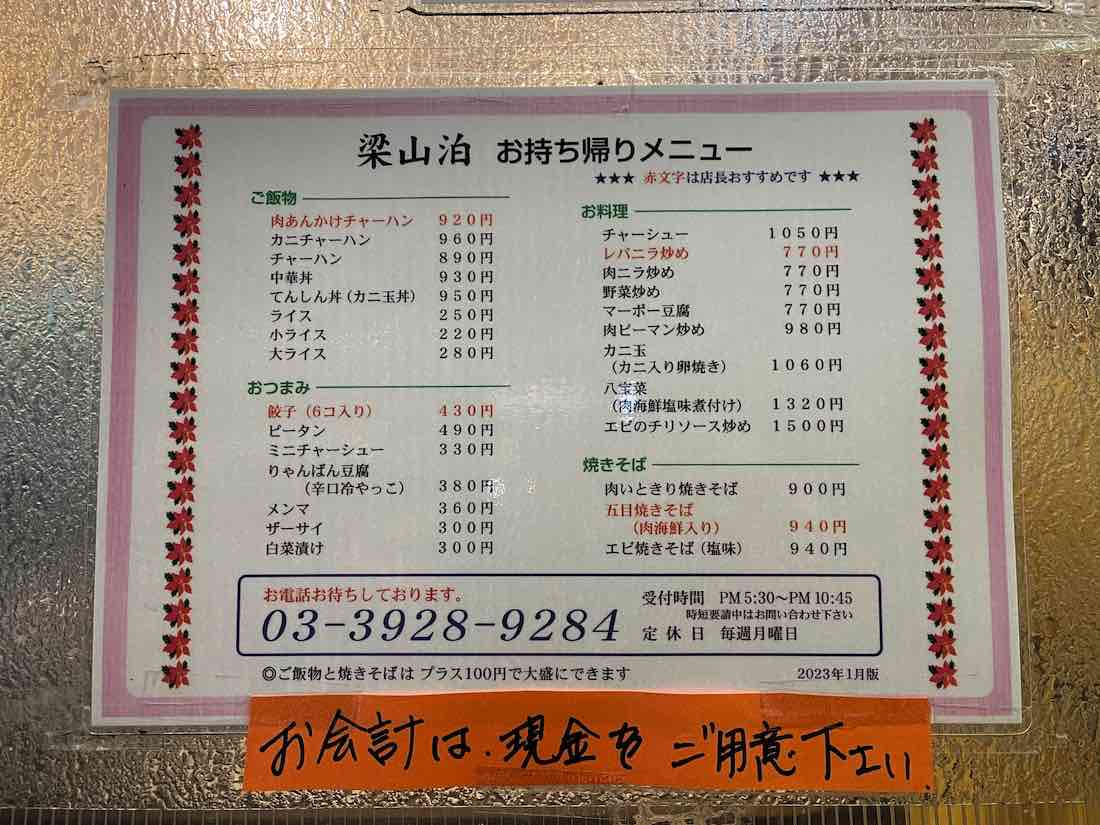 梁山泊 お持ち帰りメニュー
★★★ 赤文字は店長おすすめです ★★★
ご飯物
肉あんかけチャーハン 920円
カニチャーハン 960円
チャーハン 890円
中華丼 930円
てんしん丼(カニ玉丼) 950円
ライス 250円
小ライス 220円
大ライス 280円
おつまみ
餃子(6コ入り) 430円
ピータン 490円
ミニチャーシュー 330円
りゃんばん豆腐
(辛口冷やっこ) 380円
メンマ 360円
ザーサイ 300円
白菜漬け 300円
お料理
チャーシュー 1050円
レバニラ炒め 770円
肉ニラ炒め 770円
野菜炒め 770円
マーボー豆腐 770円
肉ピーマン炒め 980円
カニ玉
(カニ入り卵焼き) 1060円
八宝菜
(肉海鮮塩味煮付け) 1320円
エビのチリソース炒め 1500円
焼きそば
肉いときり焼きそば 900円
五目焼きそば
(肉海鮮入り) 940円
エビ焼きそば(塩味) 940円
お電話お待ちしております。
03-3928-9284
受付時間 PM 5:30〜PM 10:45
時短要請中はお問い合わせ下さい
定休日 毎週月曜日
◎ご飯物と焼きそばは プラス100円で大盛にできます
2023年1月版
お会計は、現金をご用意下さい